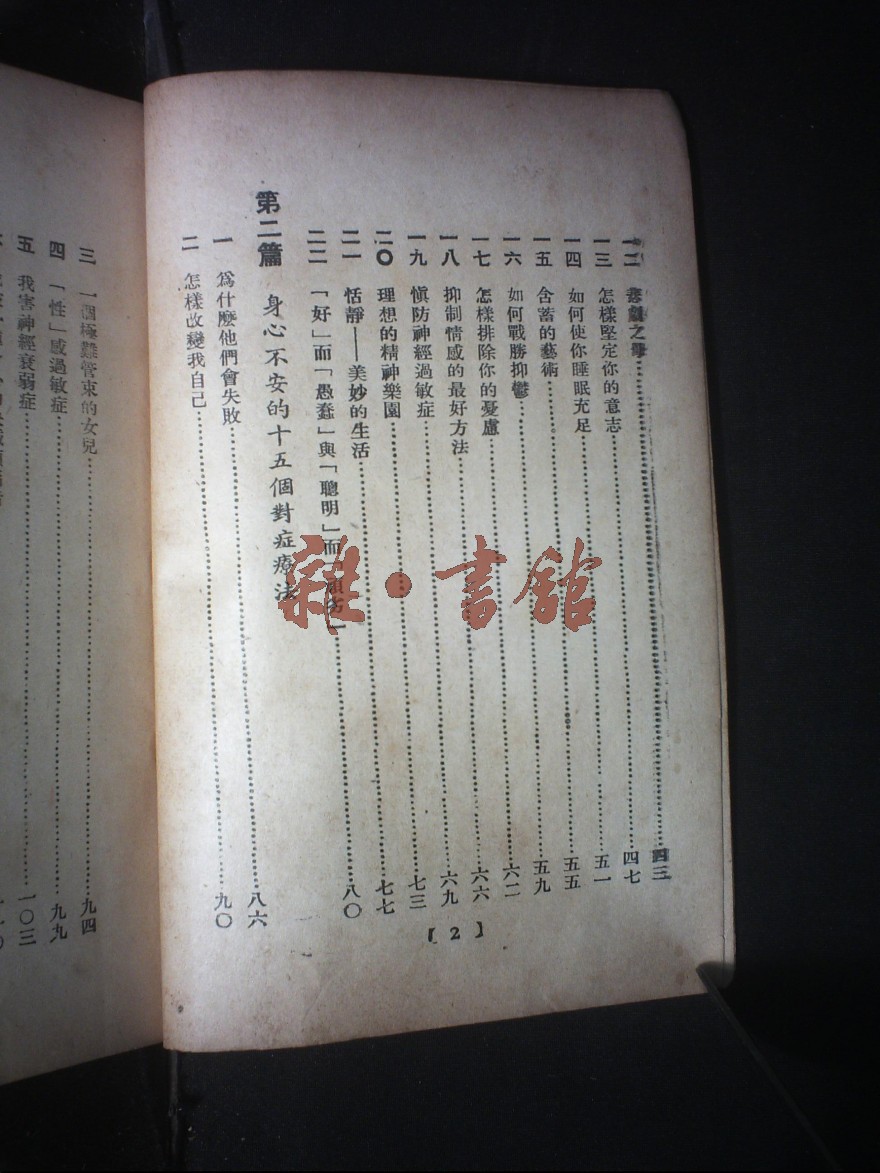 一二 悲劇之母……四三
一三 怎樣堅定你的意志……四七
一四 如何使你睡眠充足……五一
一五 含蓄的藝術……五五
一六 如何戰勝抑鬱……五九
一七 怎樣排除你的憂慮……六二
一八 抑制情感的最好方法……六六
一九 愼防神經過敏症……六九
二〇 理想的精神樂園……七三
二一 恬靜——美妙的生活……七七
二二 「好」而「愚蠢」與「聰明」而「頑劣」……八〇
第二篇 身心不安的十五個對症療法
一 爲什麼他們會失敗……八六
二 怎樣改變我自己……九〇
【2】
三 一個極難管束的女兒……九四
四 「性」感過敏症……九九
五 我害神經衰弱症……一〇三
雜·書館